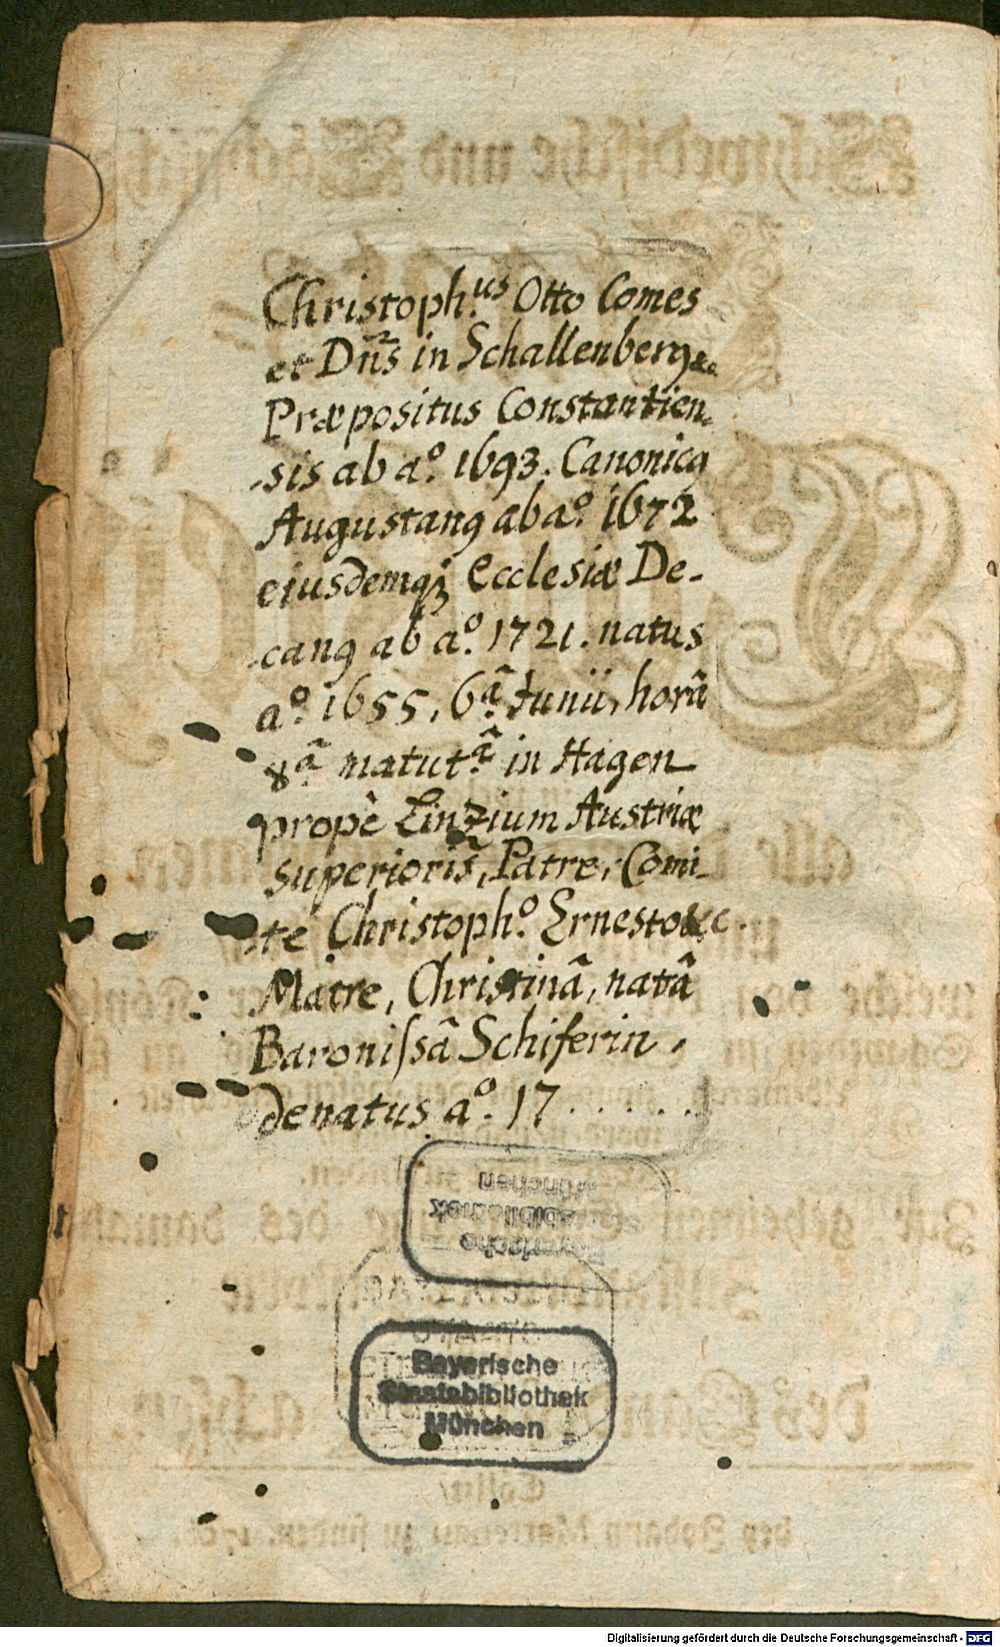 Christoph.us Otto Comes
et Dn̄s in Schallenberg &c.
Præpositus Constantien-
-sis ab aº. 1693. Canonicꝰ
Augustanꝰ ab aº. 1672
ejusdemqꝫ Ecclesiæ De-
-canꝰ ab aº. 1721. natus
aº. 1655, 6.â Junii, horâ
8.â matut.â in Hagen
propè Linzium Austriæ
superioris, Patre, Comi-
-te Christophº. Ernesto &c.
Matre, Christinâ, natâ
Baroniſsâ Schiferin.
denatus aº. 17......
Bayerische
Staatsbibliothek
München
Bayerische
Staatsbibliothek
München
Digitalisierung gefördert durch die Deutsche Forschungsgemeinschaft - DFG